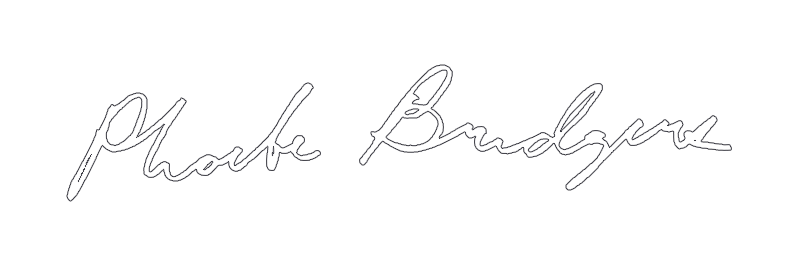 Phoebe Bridgers